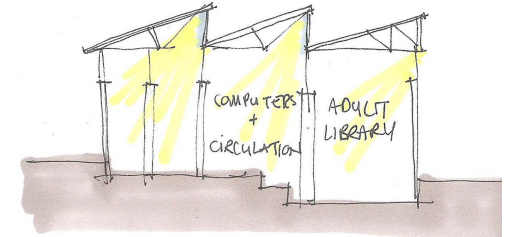 COMPUTERS
+
CIRCULATION
ADULT
LIBRARY